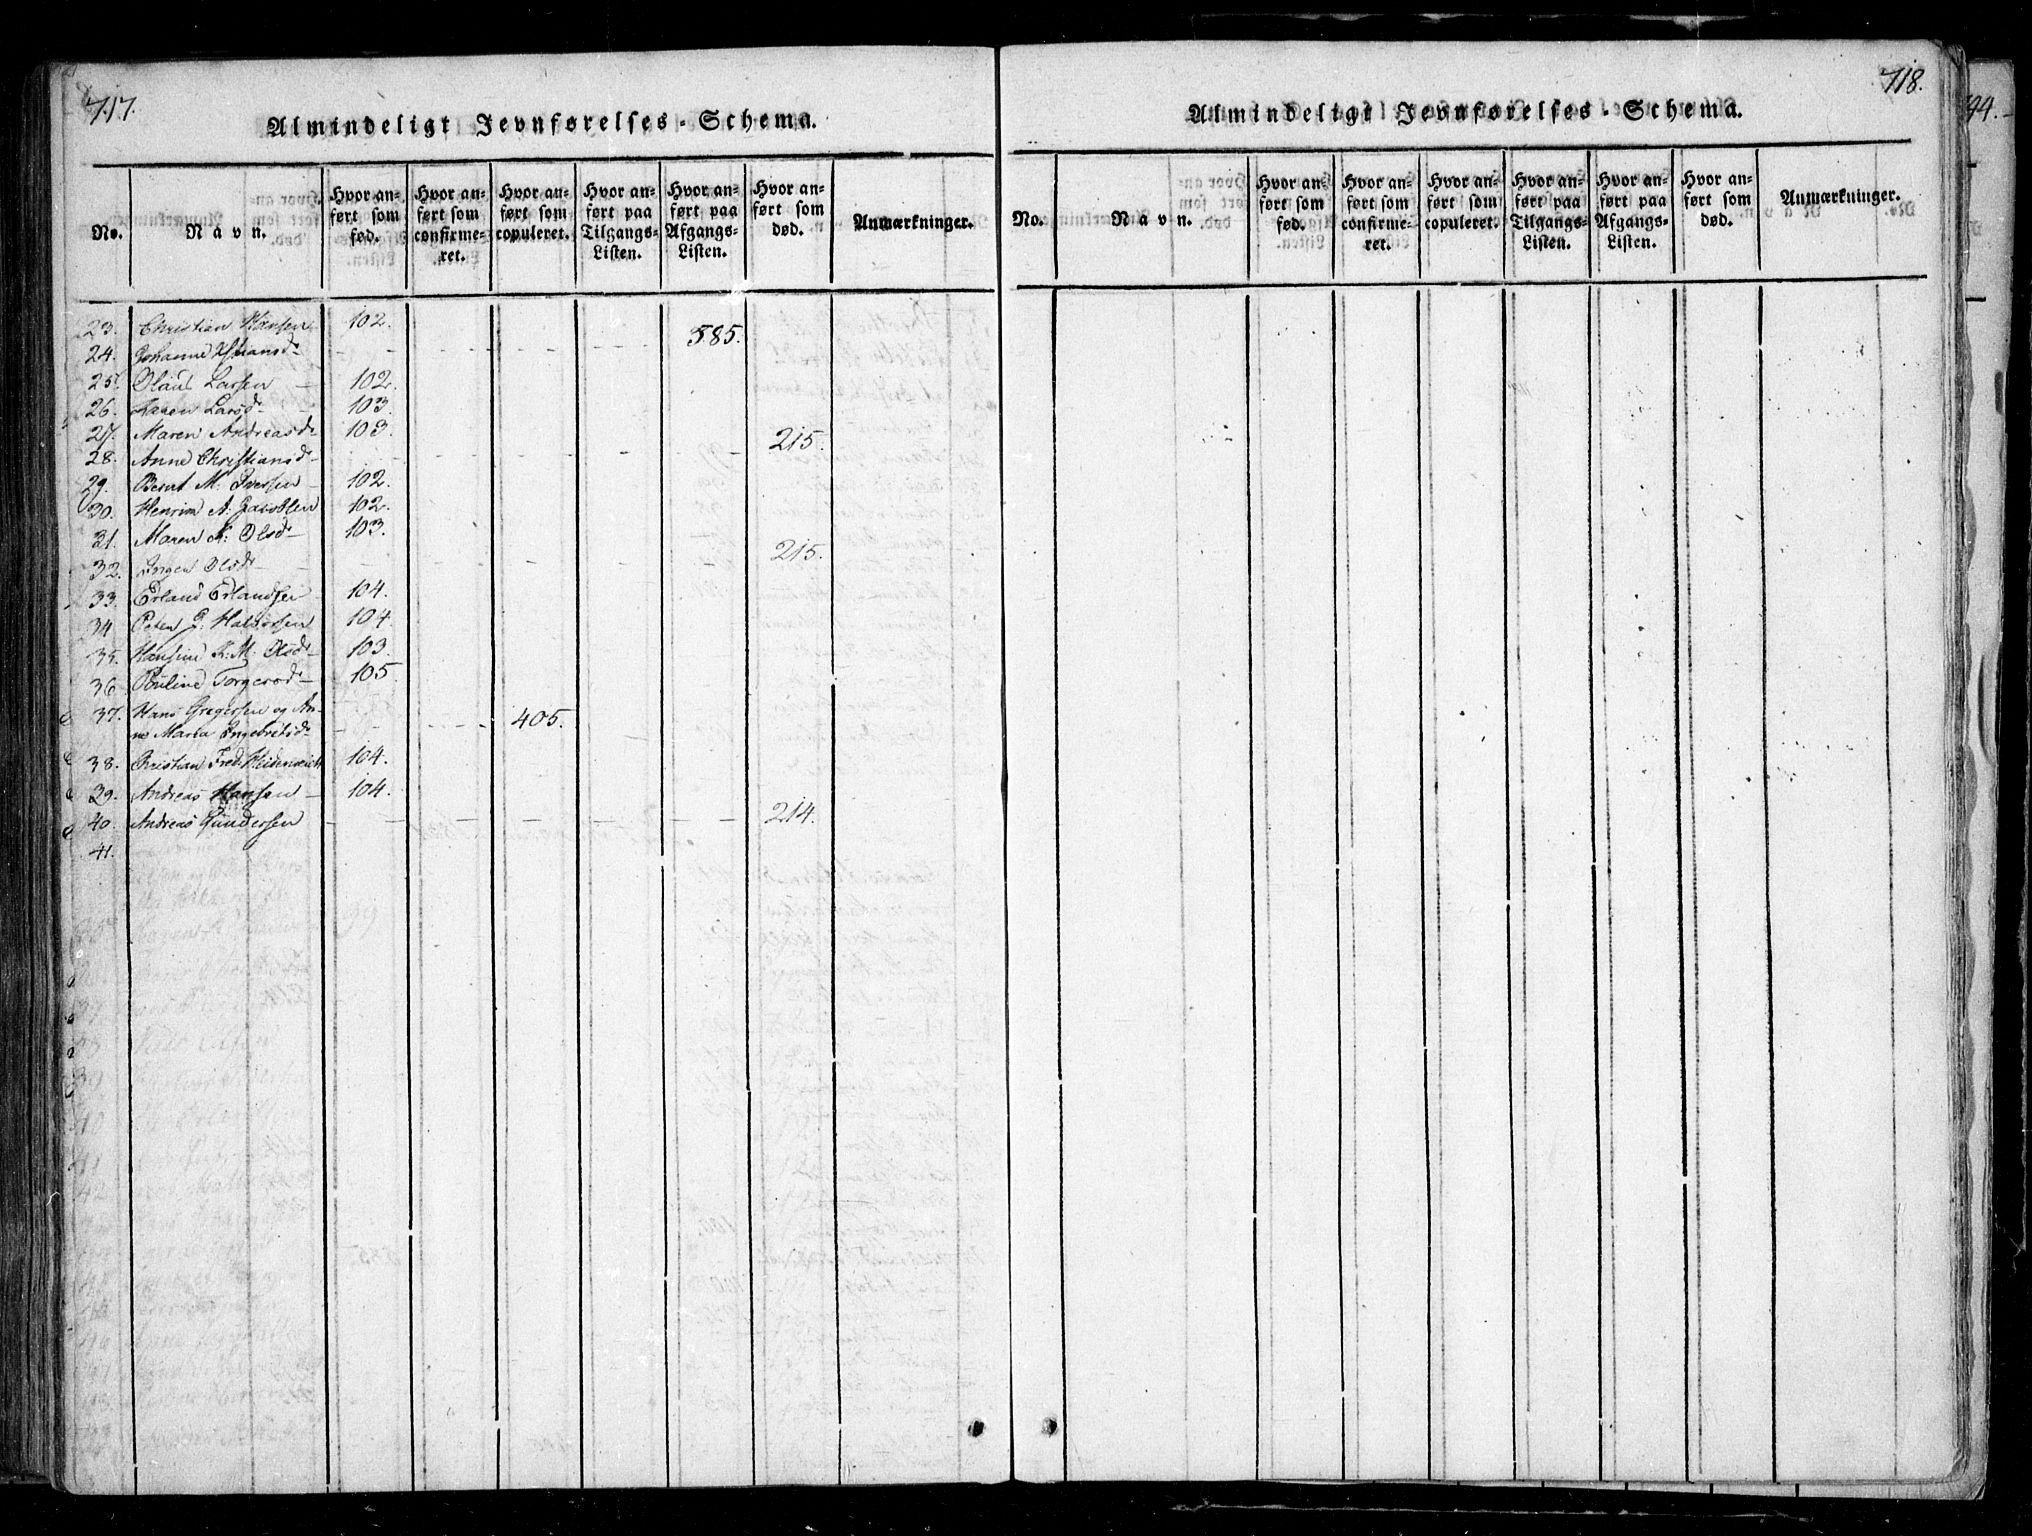 717.
Almindeligt Jevnførelses-Schema.
No.
Navn.
Hvor anført som fød.
Hvor anført som confirmeret.
Hvor anført som copuleret.
Hvor anført paa Tilgangs-Listen.
Hvor anført paa Afgangs-Listen.
Hvor anført som død.
Anmærkninger.
23. Christian Hansen 102.
24. Johanne Hansd. 585.
25. Olaus Larsen 102.
26. Karen Larsd. 103.
27. Maren Andreasd. 103.
28. Anne Christiansd. 215.
29. Bernt M. Iversen 102.
30. Henrim A. Jacobsen 102.
31. Maren K. Olsd. 103.
32. Ingen Olsd. 215.
33. Erland Erlandsen 104.
34 Peter G. Halvorsen 104.
35. Hansine K. M. Olsd. 103.
36 Pauline Torgersd. 105.
37. Hans Gregersen og An-
ne Maria Ingebretsd. 405.
38. Christian Fred. Heidenreich 104.
39. Andreas Hansen 104.
40. Andreas Gundersen 214.
41.
718.
Almindeligt Jevnførelses-Schema.
No.
Navn.
Hvor anført som fød.
Hvor anført som confirmeret.
Hvor anført som copuleret.
Hvor anført paa Tilgangs-Listen.
Hvor anført paa Afgangs-Listen.
Hvor anført som død.
Anmærkninger.